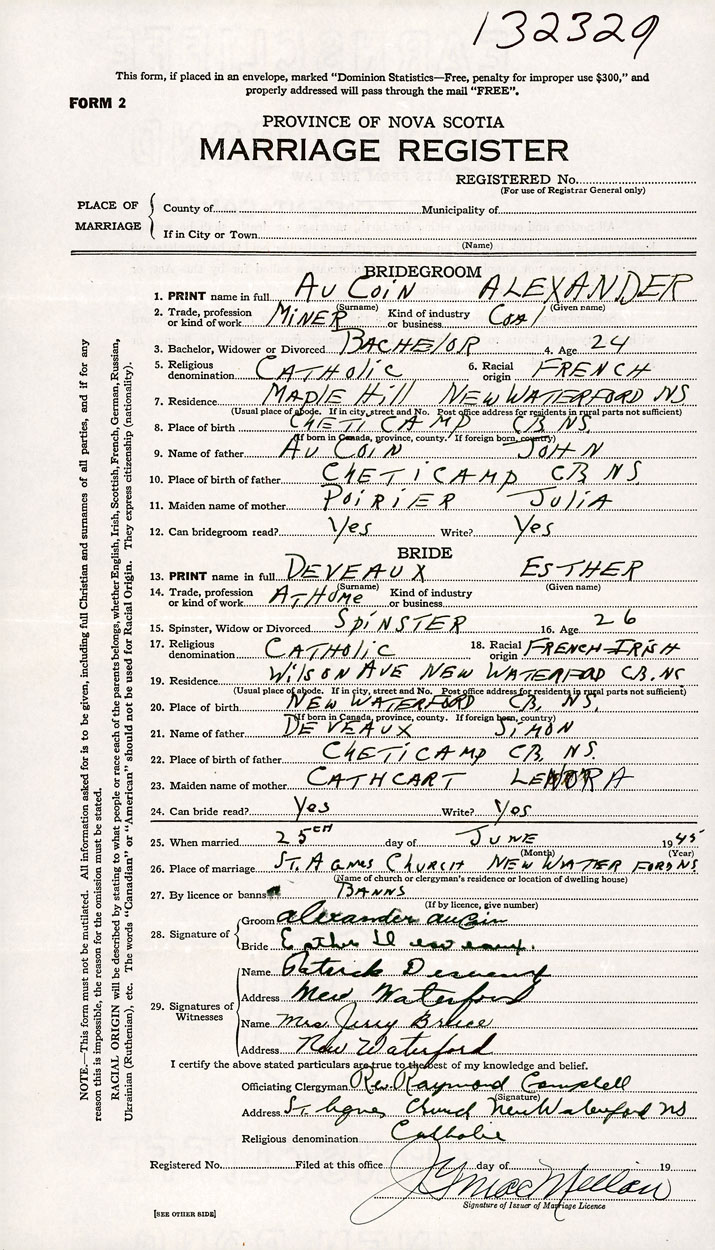 132329
This form, if placed in an envelope, marked "Dominion Statistics—Free, penalty for improper use $300," and
properly addressed will pass through the mail "FREE".
FORM 2
PROVINCE OF NOVA SCOTIA
MARRIAGE REGISTER
REGISTERED No.
(For use of Registrar General only)
PLACE OF MARRIAGE
County of Municipality of
If in City or Town
(Name)
BRIDEGROOM
1. PRINT name in full AU COIN ALEXANDER
(Surname) (Given name)
2. Trade, profession or kind of work MINER Kind of industry or business COAl
3. Bachelor, Widower or Divorced BACHElOR 4. Age 24
5. Religious denomination CATHOLIC 6. Racial origin FRENCH
7. Residence MAPLE Hill NEW WATERFORD NS
(Usual place of abode. If in city, street and No. Post office address for residents in rural parts not sufficient)
8. Place of birth CHETICAMP CB NS.
(If born in Canada, province, county. If foreign born, country)
9. Name of father AU COIN JOHN
10. Place of birth of father CHETICAMP CB NS
11. Maiden name of mother POIRIER JULIA
12. Can bridegroom read? Yes Write? Yes
BRIDE
13. PRINT name in full DEVEAUX ESTHER
(Surname) (Given name)
14. Trade, profession or kind of work AT HOME Kind of industry or business
15. Spinster, Widow or Divorced SPINSTER 16. Age 26
17. Religious denomination CATHOLIC 18. Racial origin FRENCH-IRISH
19. Residence WILSON AVE NEW WATERFORD CB. NS
(Usual place of abode. If in city, street and No. Post office address for residents in rural parts not sufficient)
20. Place of birth NEW WATERFORD CB, NS.
(If born in Canada, province, county. If foreign born, country)
21. Name of father DEVEAUX SIMON
22. Place of birth of father CHETICAMP CB, NS.
23. Maiden name of mother CATHCART LENORA
24. Can bride read? Yes Write? Yes
25. When married 25th day of JUNE 1945
(Month) (Year)
26. Place of marriage ST. AGNES CHURCH NEW WATERFORD NS.
(Name of church or clergyman's residence or location of dwelling house)
27. By licence or banns BANNS
(If by licence, give number)
28. Signature of
Groom Alexander AuCoin
Bride Esther Deveaux.
29. Signatures of Witnesses
Name Patrick
Address New Waterford
Name Mrs. Jerry Bruce
Address New Waterford
I certify the above stated particulars are true to the best of my knowledge and belief.
Officiating Clergyman Rev. Raymond Campbell
(Signature)
Address St. Agnes Church New Waterford NS
Religious denomination Catholic
Registered No. Filed at this office day of 19
Signature of Issuer of Marriage Licence
[SEE OTHER SIDE]
NOTE.—This form must not be mutilated. All information asked for is to be given, including full Christian and surnames of all parties, and if for any
reason this is impossible, the reason for the omission must be stated.
RACIAL ORIGIN will be described by stating to what people or race each of the parents belongs, whether English, Irish, Scottish, French, German, Russian,
Ukrainian (Ruthenian), etc. The words "Canadian" or "American" should not be used for Racial Origin. They express citizenship (nationality).